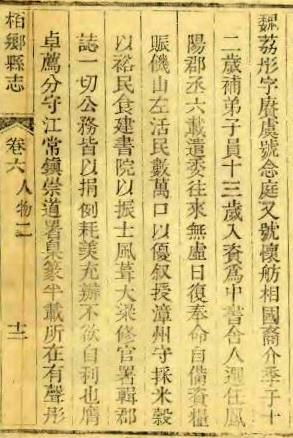 魏荔彤字賡虞號念庭又號懷舫相國裔介季子十
二歲補弟子員十三歲入資爲中書舍人選任鳳
陽郡丞六載遣委往來無虛日復奉命自備資糧
賑饑山左活民數萬口以優叙授漳州守採米穀
以裕民食建書院以振士風葺大梁修官署輯郡
誌一切公務皆以捐例耗羡充辦不欲自利也膺
卓薦分守江常鎮崇道署臬篆半載所在有聲彤
栢鄉縣志 卷六 人物二 十二